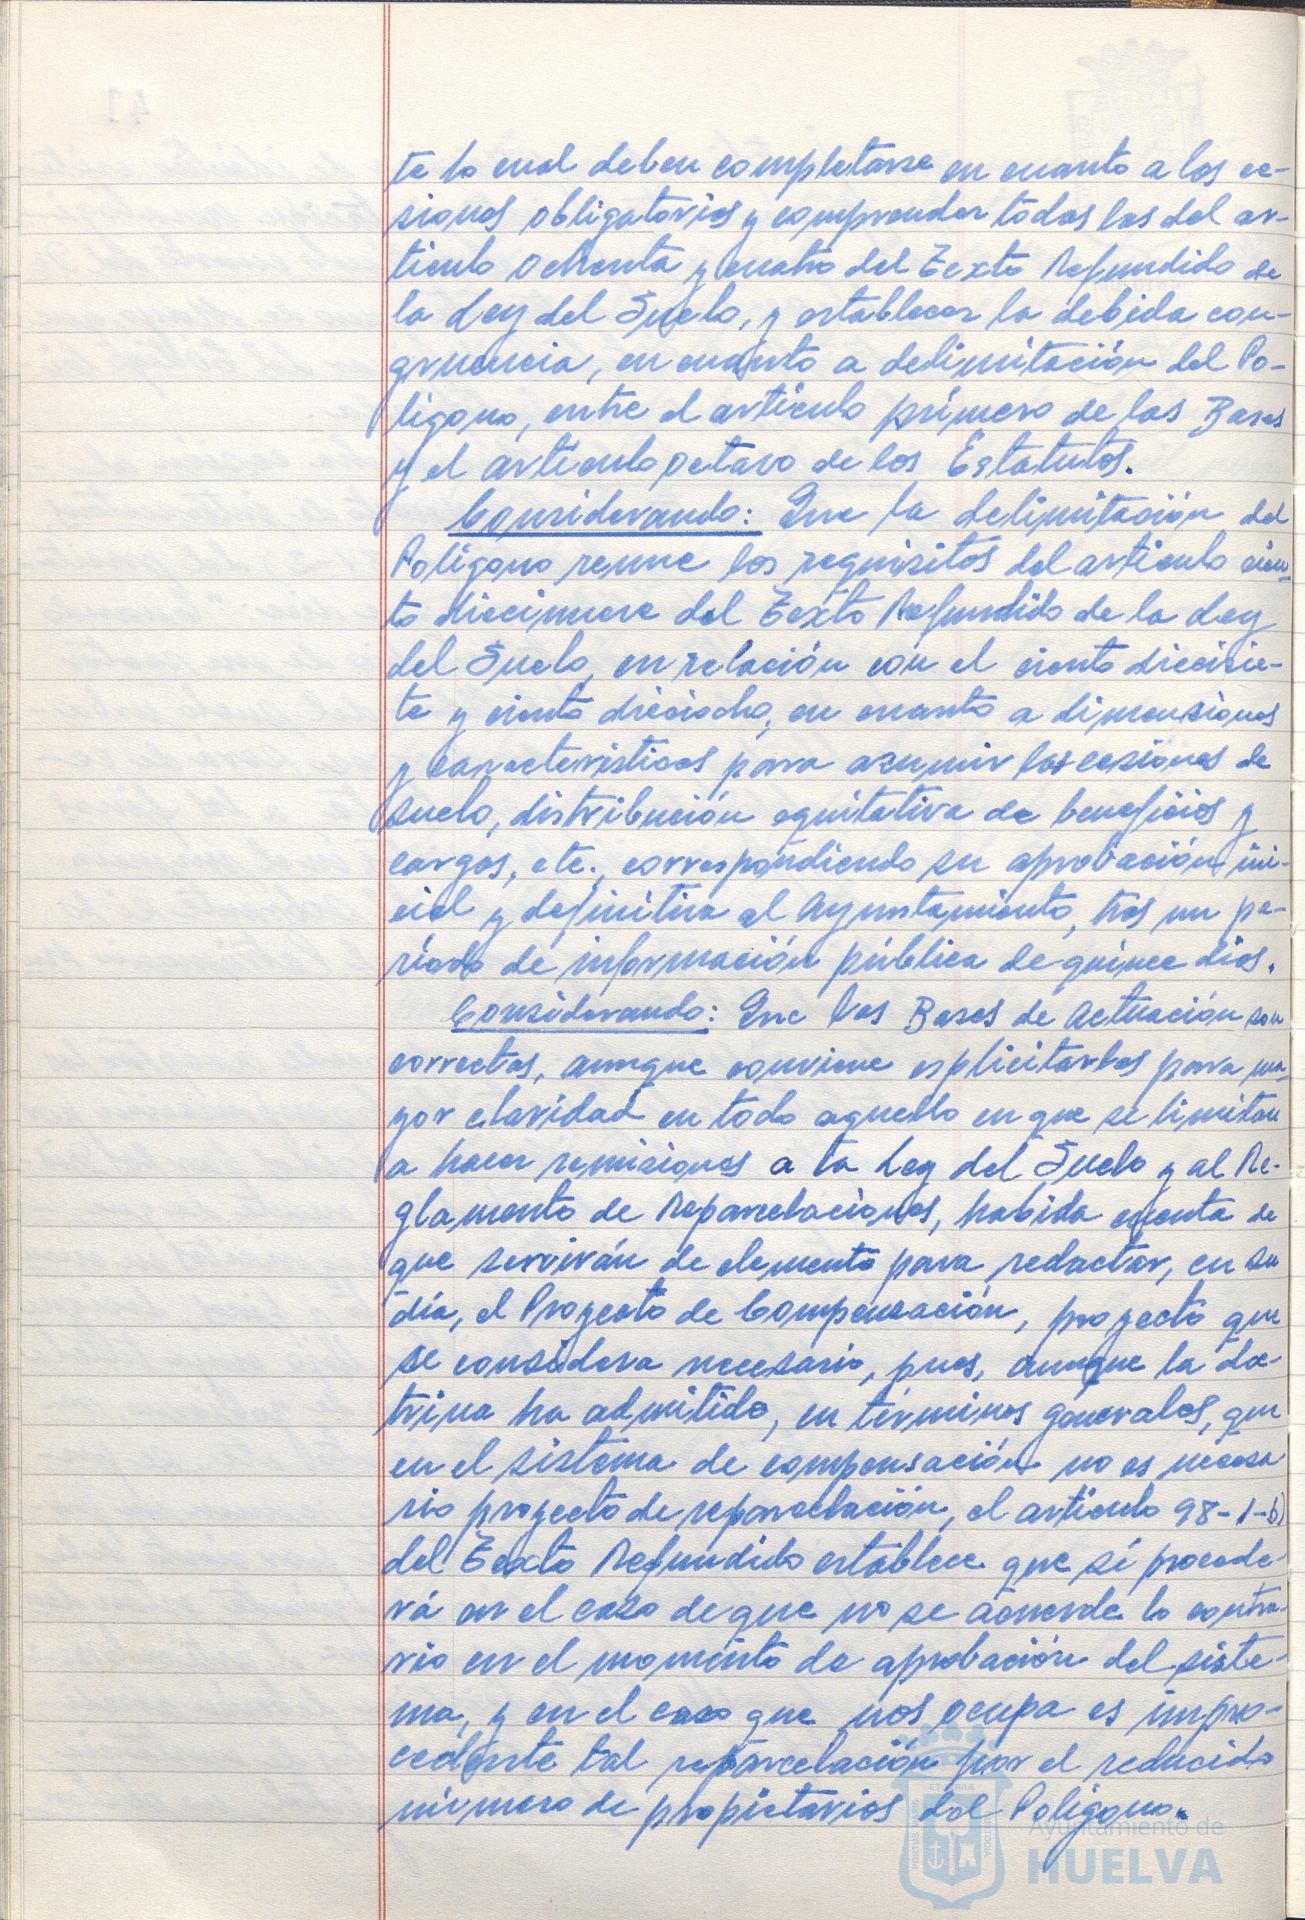 te lo cual deben completarse en cuanto a las ce-
siones obligatorias y comprender todas las del ar-
tículo ochenta y cuatro del Texto Refundido de
la Ley del Suelo, y establecer la debida con-
gruencia, en cuanto a delimitación del Po-
lígono, entre el artículo primero de las Bases
y el artículo octavo de los Estatutos.
Considerando: Que la delimitación del
Polígono reune los requisitos del artículo cien-
to diecinueve del Texto Refundido de la Ley
del Suelo, en relación con el ciento diecisie-
te y ciento dieciocho, en cuanto a dimensiones
y características para asumir las cesiones de
suelo, distribución equitativa de beneficios y
cargas, etc., correspondiendo su aprobación ini-
cial y definitiva al Ayuntamiento, tras un pe-
ríodo de información pública de quince días.
Considerando: Que las Bases de Actuación son
correctas, aunque conviene explicitarlas para ma-
yor claridad en todo aquello en que se limitan
a hacer remisiones a la Ley del Suelo y al Re-
glamento de Reparcelaciones, habida cuenta de
que servirán de elemento para redactar, en su
día, el Proyecto de Compensación, proyecto que
se considera necesario, pues, aunque la doc-
trina ha admitido, en términos generales, que
en el sistema de compensación no es necesa
rio proyecto de reparcelación, el artículo 98-1-b)
del Texto Refundido establece que sí procede-
rá en el caso de que no se acuerde lo contra-
rio en el momento de aprobación del siste-
ma, y en el caso que nos ocupa es impro-
cedente tal reparcelación por el reducido
número de propietarios del Polígono.
Ayuntamiento de
HUELVA